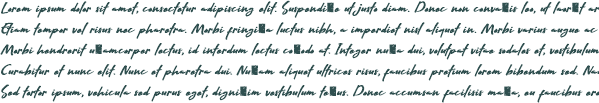 Lorem ipsum dolor sit amet, consectetur adipiscing elit. ut justo diam. Donec non leo, ut
Etiam tempor vel risus nec pharetra. Morbi luctus nibh, a imperdiet nisl aliquet in. Morbi varius augue ac
Morbi hendrerit lectus, id interdum lectus at. Integer dui, volutpat vitae sodales et, vestibulum
Curabitur et nunc elit. Nunc et pharetra dui. aliquet ultrices risus, faucibus pretium lorem bibendum sed.
Sed tortor ipsum, vehicula sed purus eget, vestibulum Donec accumsan facilisis eu faucibus